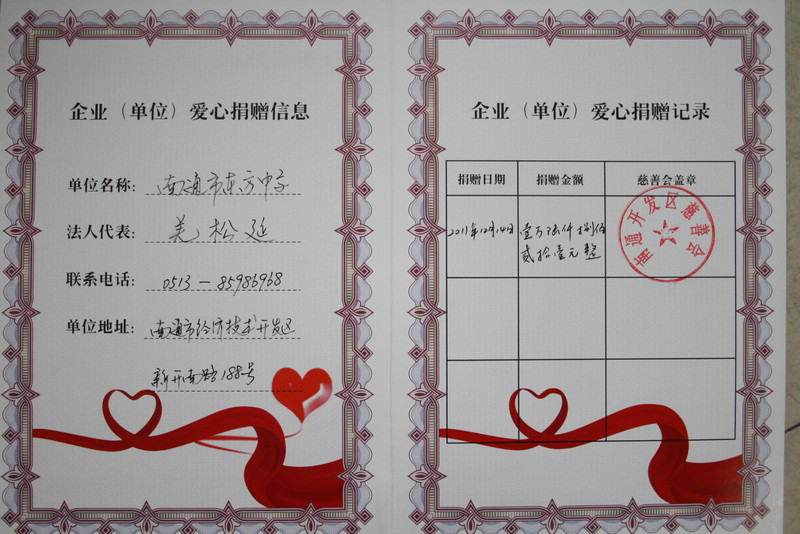 企业（单位）爱心捐赠信息
单位名称：南通市东方中学
法人代表：羌松延
联系电话：0513—85986968
单位地址：南通市经济技术开发区
新开南路188号
企业（单位）爱心捐赠记录
捐赠日期 捐赠金额 慈善会盖章
2011年12月14日 壹万陆仟捌佰
贰拾壹元整
南通开发区慈善会